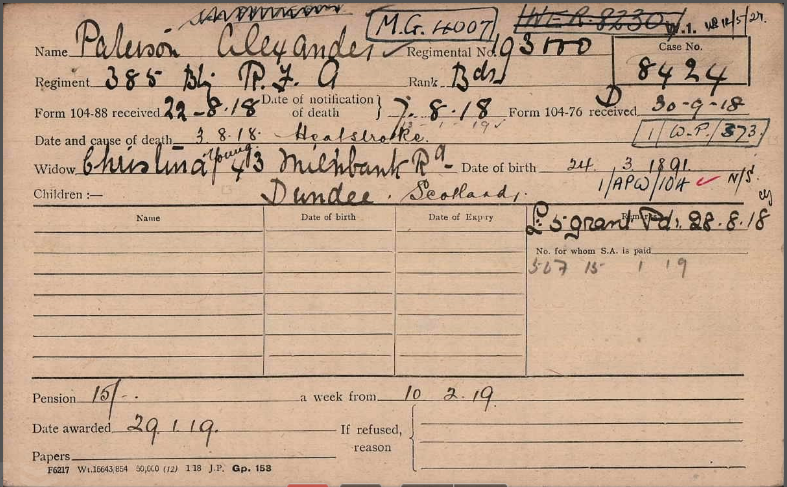 M.G. 4007 I.W.E.R. 8230 W.1. 12/5/27.
Name Paterson Alexander ✓ Regimental No. 193100 Case No.
8424
Regiment 385 Bty R.F.A Rank Bdr
Form 104-88 received 22-8.18 Date of notification of death } 7.8.18 Form 104-76 received D 30-9-18
Date and cause of death 3.8.18. Heatstroke. 1/W.P./373.
Widow Christina Young 43 Milnbank Rd Date of birth 24. 3. 1891.
1/APW/10A ✓ N/S.
Children :— Dundee. Scotland.
Name Date of birth Date of Expiry Remarks
£5 grant Pd. 28.8.18
No. for whom S.A. is paid
15 1 19
Pension 15/-. a week from 10 2.19.
Date awarded 29.1.19. If refused, reason
Papers
F6217 Wt.16643/854 50,000 (12) 1 18 J.P. Gp. 153